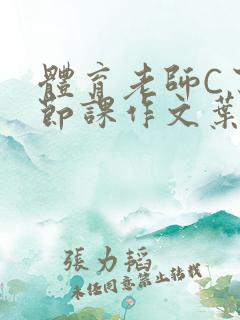 體育老師C
節課作文葉
張力韜
未經同意禁止轉載